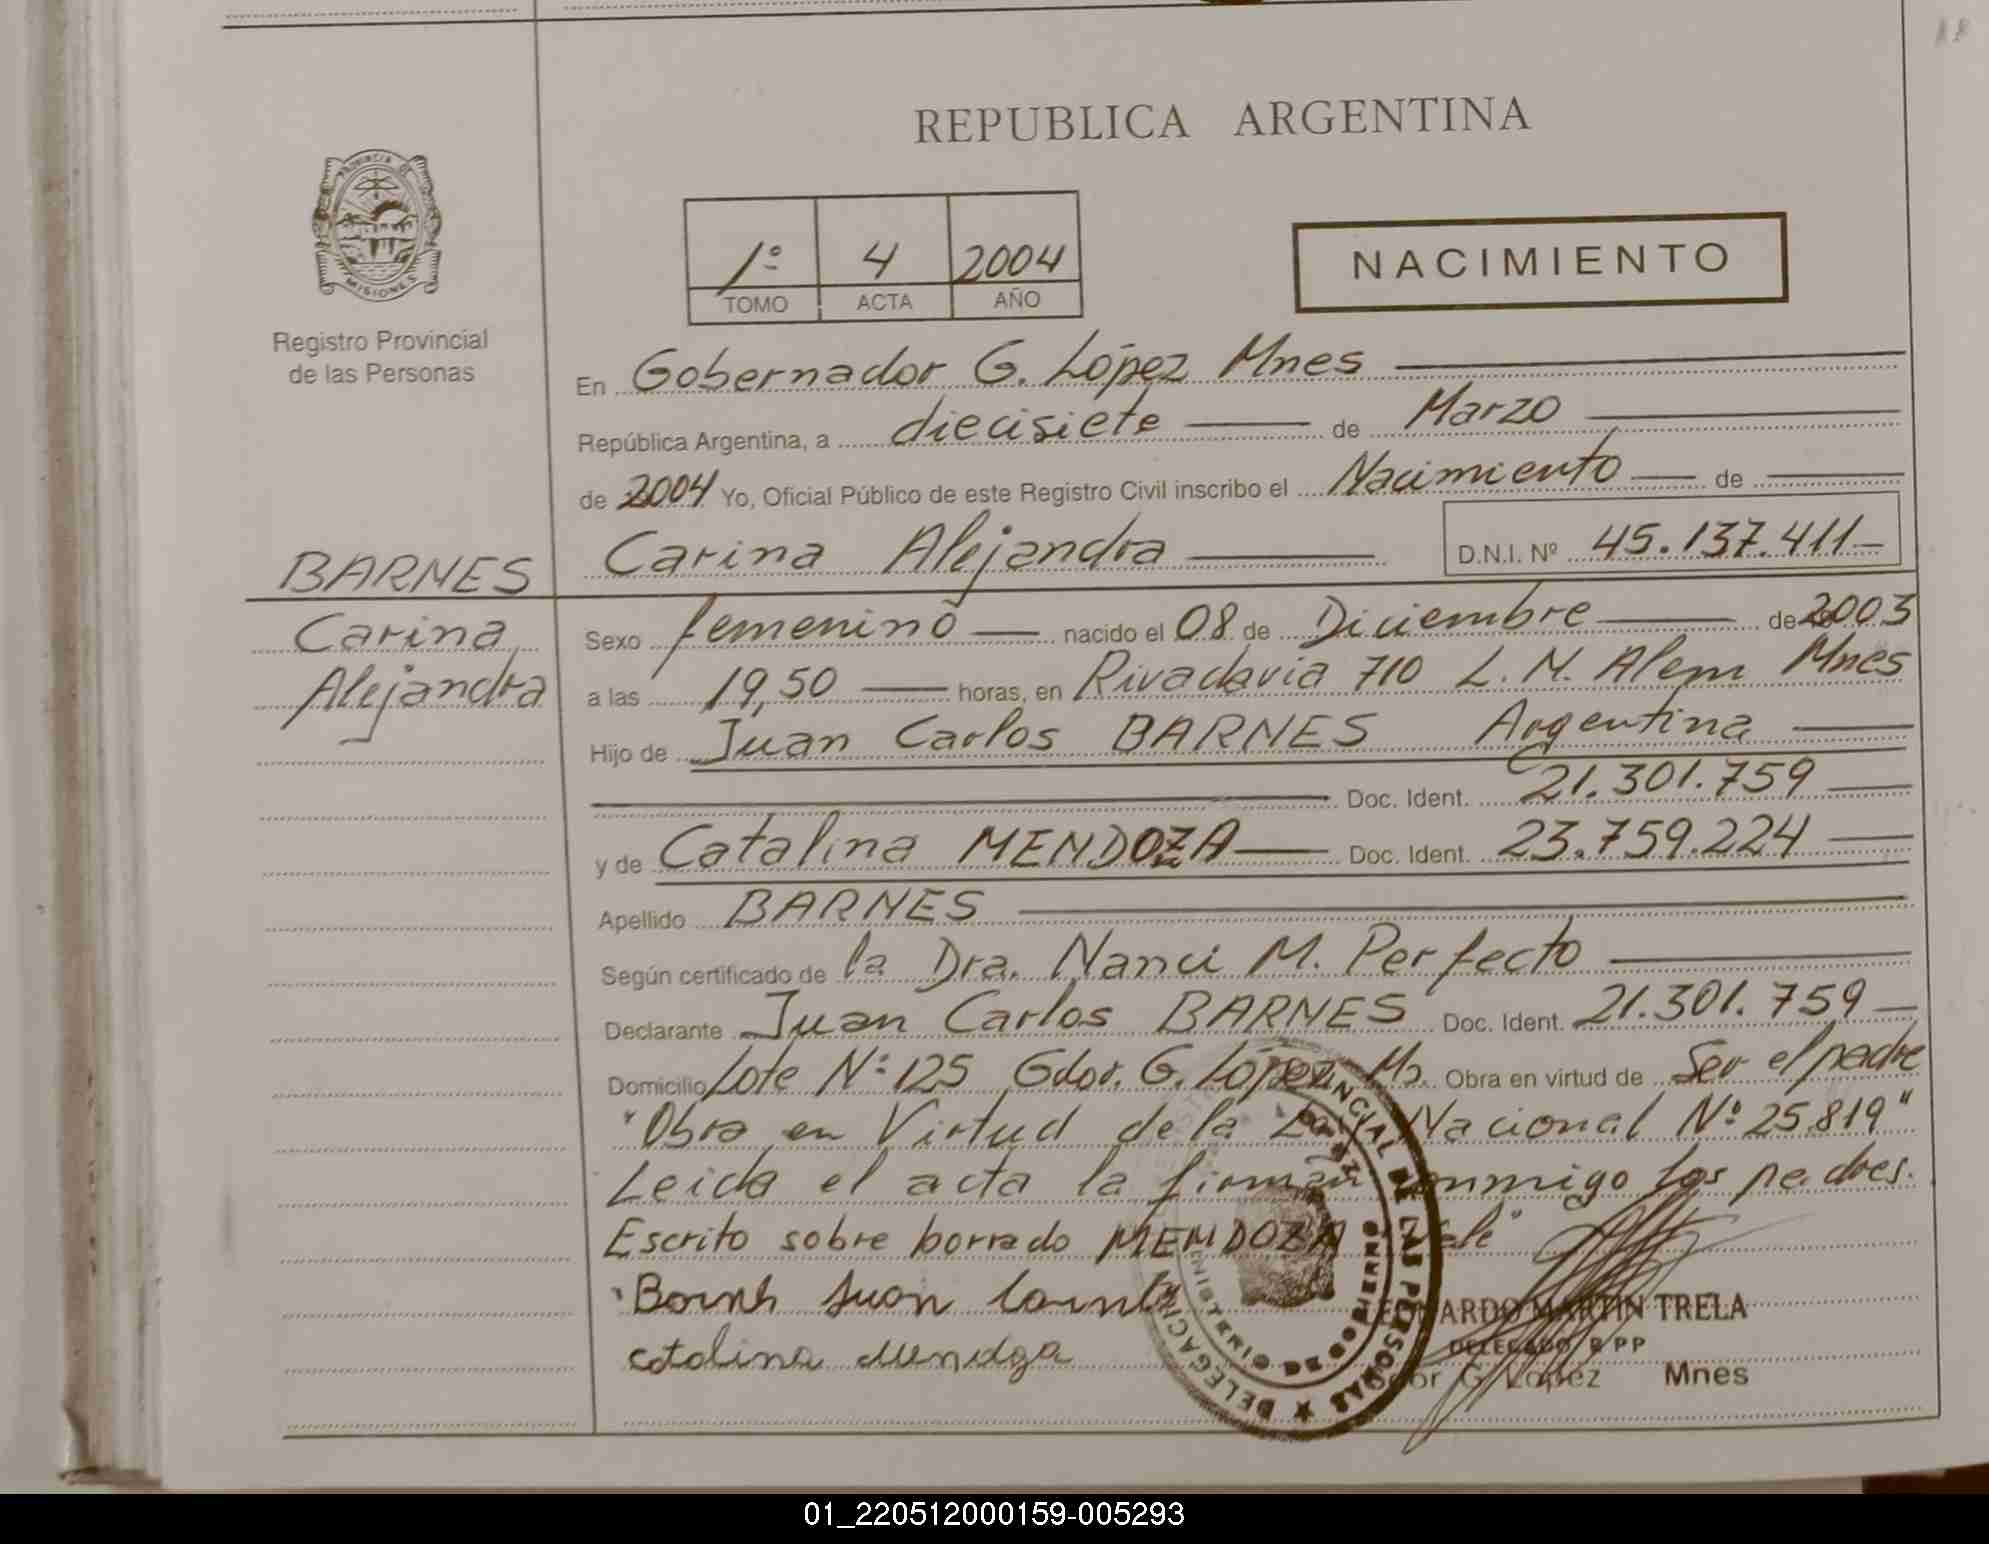 REPUBLICA ARGENTINA
PROVINCIA DE MISIONES
Registro Provincial
de las Personas
1º 4 2004
TOMO ACTA AÑO
NACIMIENTO
En Gobernador G. López Mnes
República Argentina, a diecisiete de Marzo
de 2004 Yo, Oficial Público de este Registro Civil inscribo el Nacimiento de
Carina Alejandra D.N.I. Nº 45.137.411
BARNES
Carina
Alejandra
Sexo femenino nacido el 08 de Diciembre de 2003
a las 19,50 horas, en Rivadavia 710 L. N. Alem Mnes
Hijo de Juan Carlos BARNES Argentina
Doc. Ident. 21.301.759
y de Catalina MENDOZA Doc. Ident. 23.759.224
Apellido BARNES
Según certificado de la Dra. Nanci M. Perfecto
Declarante Juan Carlos BARNES Doc. Ident. 21.301.759
Domicilio Lote Nº 125 Gdor. G. López Ms. Obra en virtud de Ser el padre
"Obra en Virtud de la Ley Nacional Nº 25.819"
Leida el acta la firman conmigo los padres.
Escrito sobre borrado MENDOZA Vale"
Juan
Catalina Mendoza
LEONARDO MARTIN TRELA
DELEGADO R PP
Gdor G López Mnes
DELEGACION PROVINCIAL DE LAS PERSONAS
01_220512000159-005293